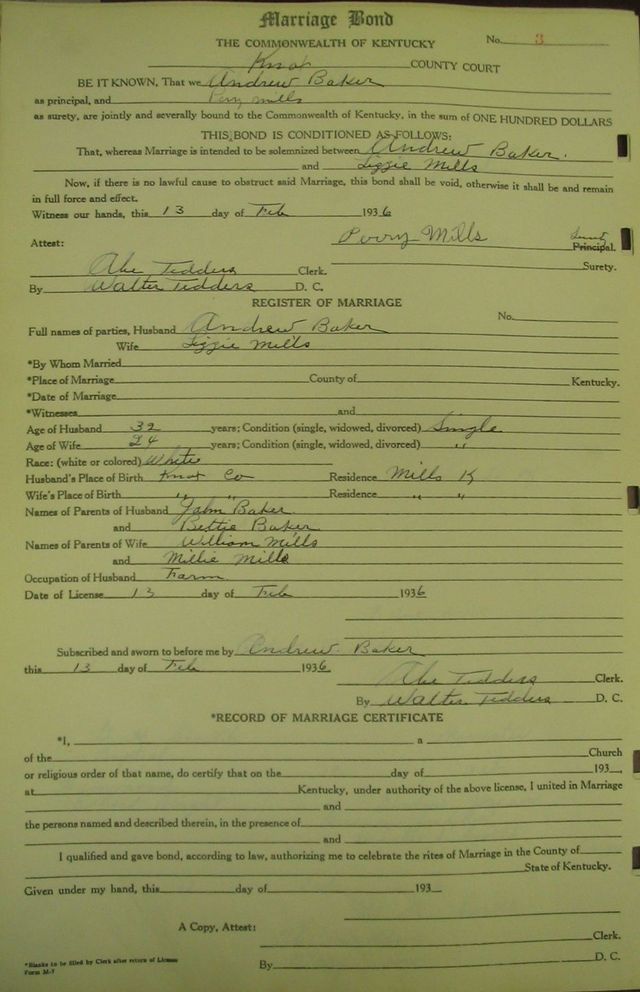 Marriage Bond
THE COMMONWEALTH OF KENTUCKY No. 3
Knox COUNTY COURT
BE IT KNOWN, That we Andrew Baker
as principal, and Perry Mills
as surety, are jointly and severally bound to the Commonwealth of Kentucky, in the sum of ONE HUNDRED DOLLARS
THIS BOND IS CONDITIONED AS FOLLOWS:
That, whereas Marriage is intended to be solemnized between Andrew Baker.
and Lizzie Mills
Now, if there is no lawful cause to obstruct said Marriage, this bond shall be void, otherwise it shall be and remain
in full force and effect.
Witness our hands, this 13 day of Feb 1936
Perry Mills
Attest: Principal.
Abe Tedders Clerk. Surety.
By Walter Tedders D. C.
REGISTER OF MARRIAGE
No.
Full names of parties, Husband Andrew Baker
Wife Lizzie Mills
*By Whom Married
*Place of Marriage County of Kentucky.
*Date of Marriage
*Witnesses and
Age of Husband 32 years; Condition (single, widowed, divorced) Single
Age of Wife 24 years; Condition (single, widowed, divorced) "
Race: (white or colored) White
Husband's Place of Birth Knox Co Residence Mills K
Wife's Place of Birth " " Residence " "
Names of Parents of Husband John Baker
and Bettie Baker
Names of Parents of Wife William Mills
and Millie Mills
Occupation of Husband Farm
Date of License 13 day of Feb 1936
Subscribed and sworn to before me by Andrew Baker
this 13 day of Feb 1936
Abe Tedders Clerk.
By Walter Tedders D. C.
*RECORD OF MARRIAGE CERTIFICATE
*I, a
of the Church
or religious order of that name, do certify that on the day of 193
at Kentucky, under authority of the above license, I united in Marriage
and
the persons named and described therein, in the presence of
and
I qualified and gave bond, according to law, authorizing me to celebrate the rites of Marriage in the County of
State of Kentucky.
Given under my hand, this day of 193
A Copy, Attest:
Clerk.
*Blanks to be filled by Clerk after return of License
Form M-7
By D. C.